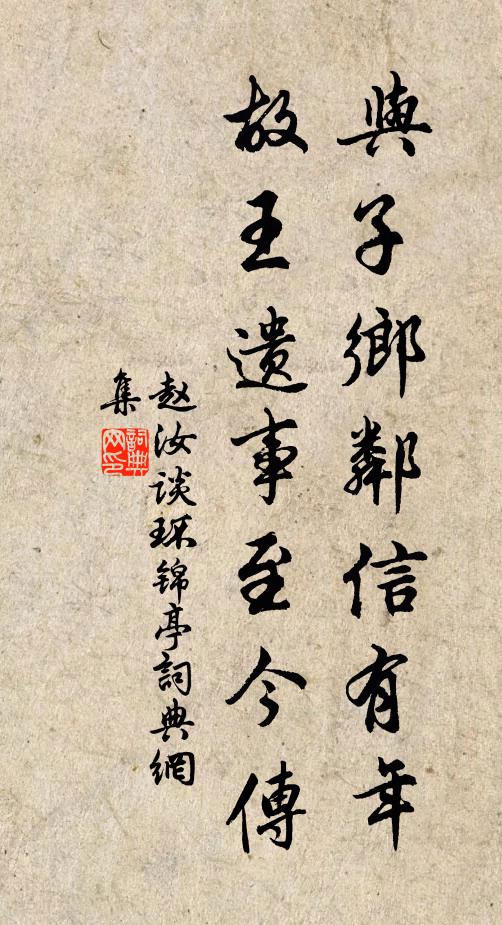 與子鄉鄰信有年
故王遺事至今傳
赵汝谈环锦亭詞典網
集
詞典網印